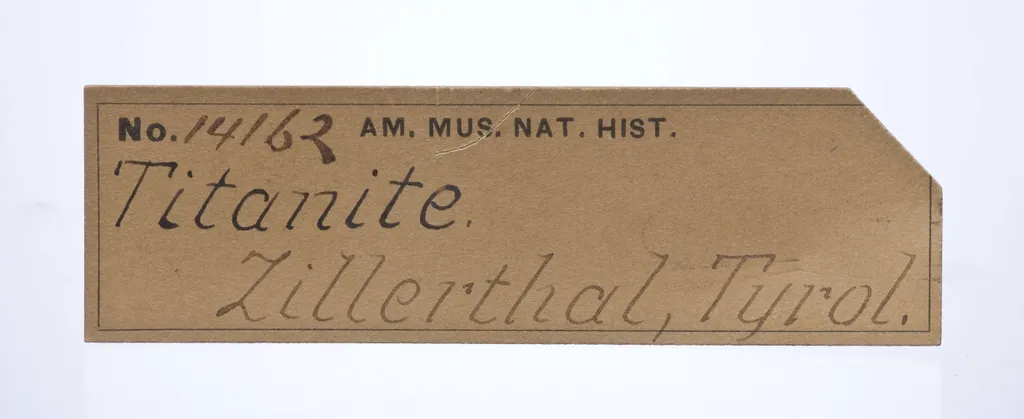 No. 14162 AM. MUS. NAT. HIST.
Titanite.
Zillerthal, Tyrol.